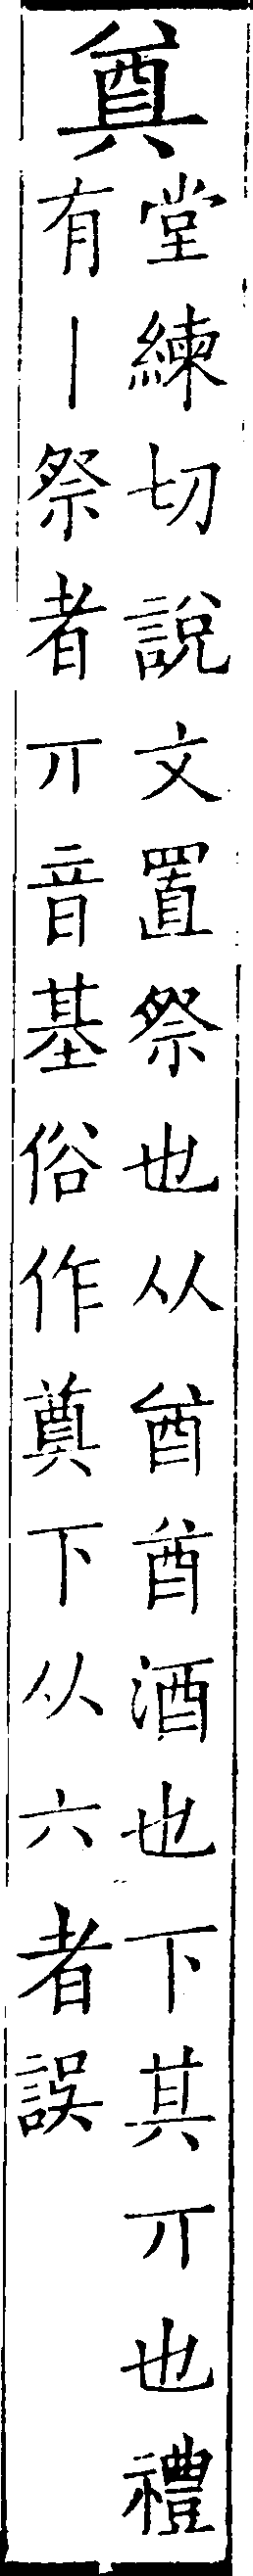 奠
堂練切說文置祭也从酋酋酒也下其丌也禮
有丨祭者丌音基俗作奠下从六者誤